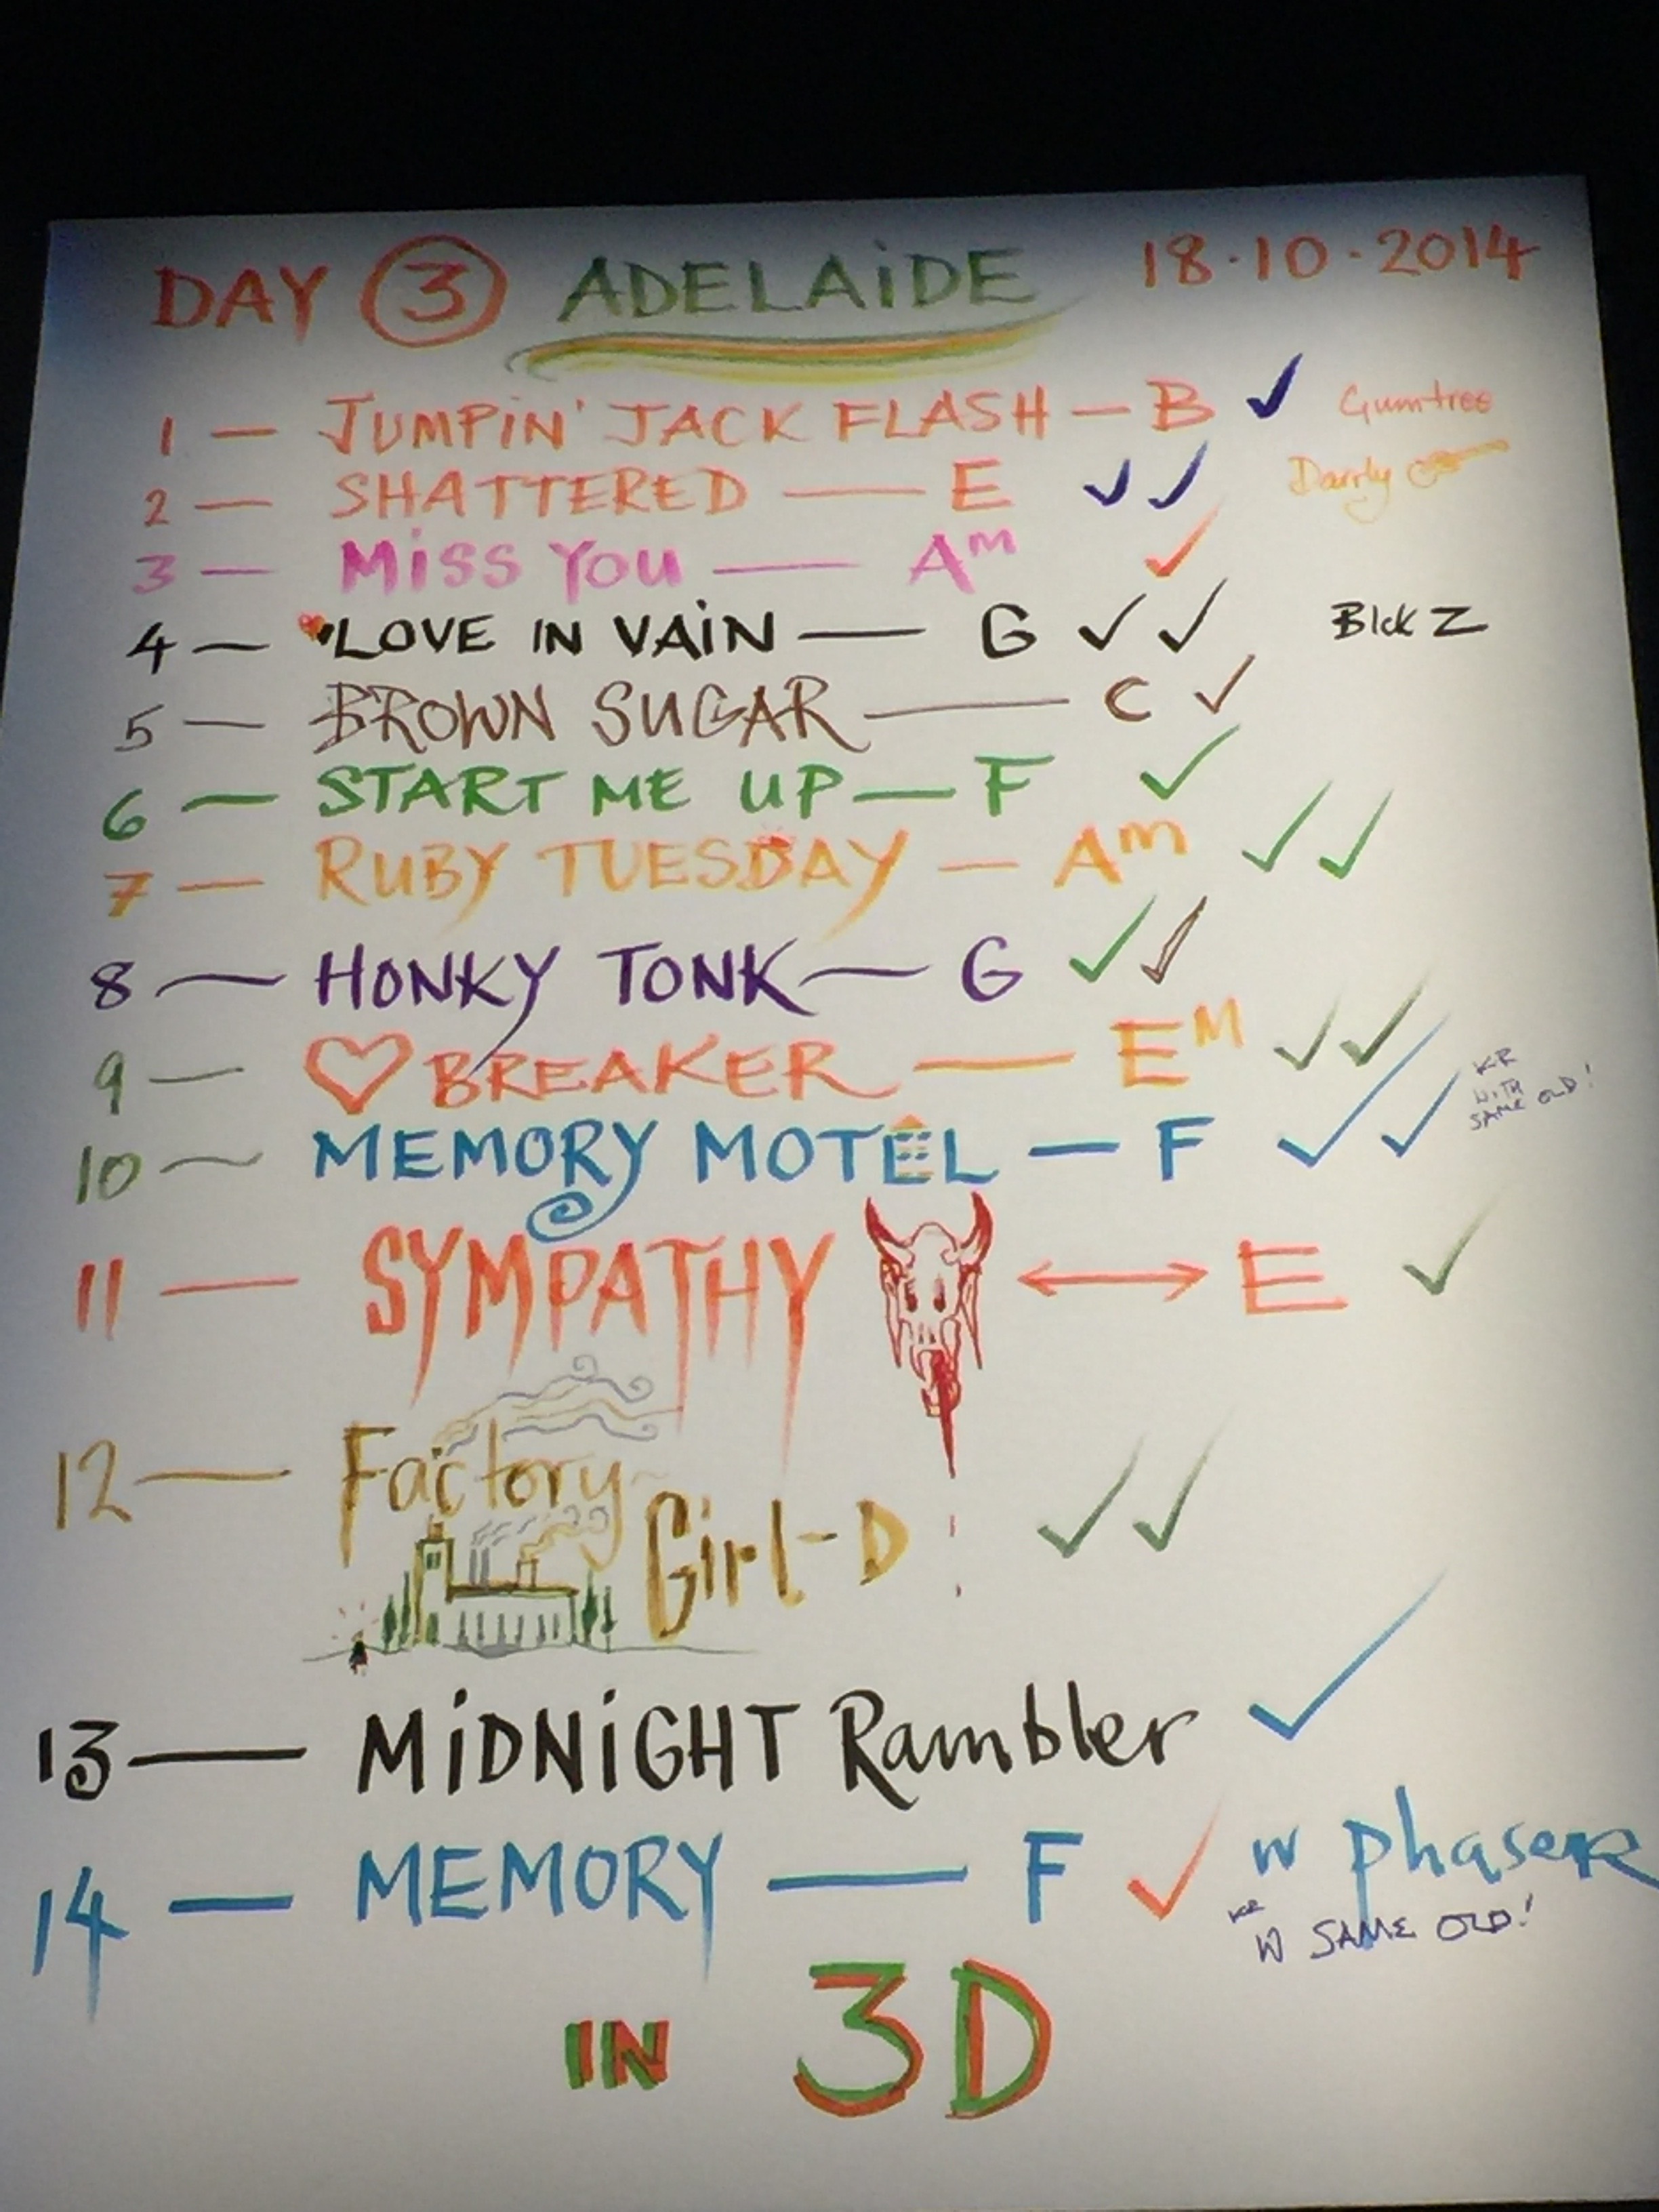 DAY 3 ADELAiDE 18·10·2014
1 — JUMPiN' JACK FLASH — B ✓ Gumtree
2 — SHATTERED — E ✓✓
3 — MiSS YOU — Aᵐ ✓
4 — LOVE IN VAiN — G ✓✓ Blck Z
5 — BROWN SUGAR — C ✓
6 — START ME UP — F ✓
7 — RUBY TUESDAY — Aᵐ ✓✓
8 — HONKY TONK — G ✓✓
9 — ♡ BREAKER — Eᴹ ✓✓
KR WITH SAME OLD!
10 — MEMORY MOTEL — F ✓✓
11 — SYMPATHY ↔ E ✓
12 — Factory Girl - D ✓✓
13 — MiDNiGHT Rambler ✓
14 — MEMORY — F ✓ W PhaseR
KR W SAME OLD!
IN 3D